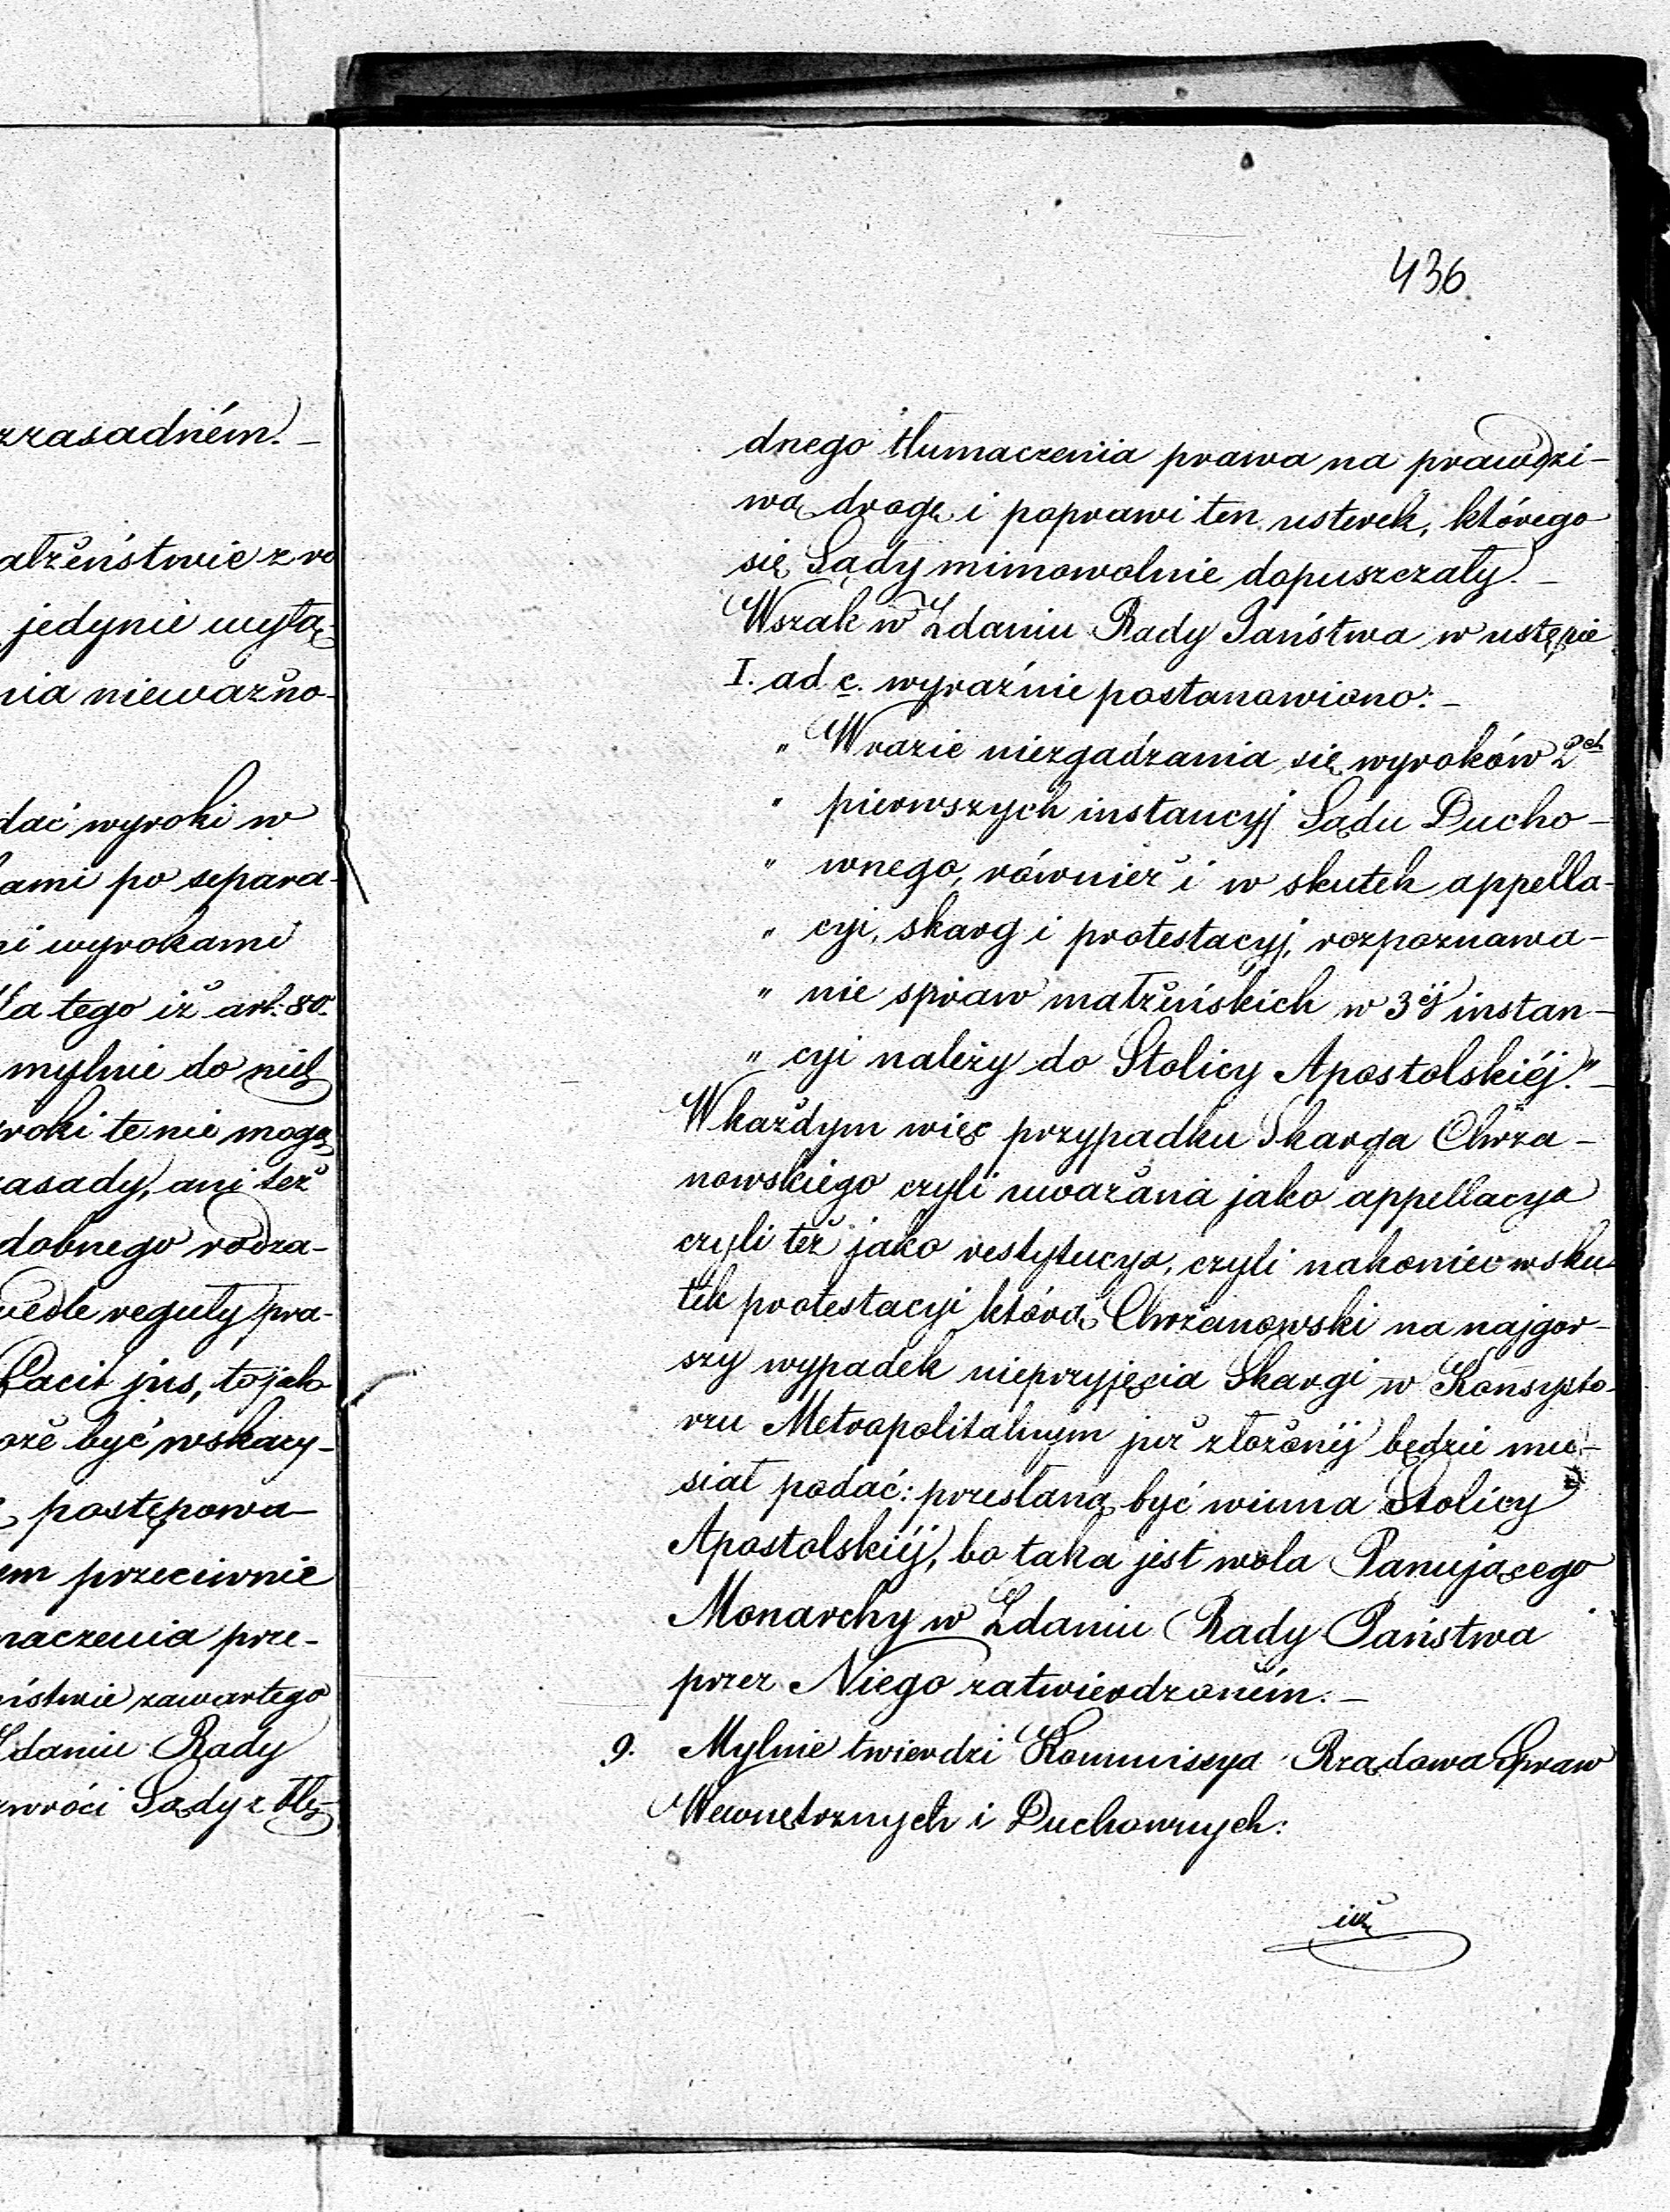 zzasadném. –
ałżeństwie z ro
jedynie wyłą-
nia nieważno-
dać wyroki w
ami po separa-
ni wyrokami
la tego iż art. 80.
mylnie do nich
roki te nie mogą
asady, ani też
dobnego rodza-
wedle reguły pra-
facit jus, to jak
oże być wskazy-
postępowa-
em przeciwnie
naczenia prze-
ństwie zawartego
Zdaniu Rady
zwróci Sądy z błę-
436
dnego tłumaczenia prawa na prawdzi-
wą drogę i poprawi ten usterek, którego
się Sądy mimowolnie dopuszczały. –
Wszak w Zdaniu Rady Państwa w ustępie
I. ad c. wyraźnie postanowiono: –
„ W razie niezgadzania się wyroków 2ch
„ pierwszych instancyj Sądu Ducho-
„ wnego, również i w skutek appella-
„ cyi, skarg i protestacyj, rozpoznawa-
„ nie spraw małżeńskich w 3éj instan-
„ cyi należy do Stolicy Apostolskiéj." –
W każdym więc przypadku Skarga Chrza-
nowskiego czyli uważana jako appellacya
czyli też jako restytucya, czyli nakoniec wsku-
tek protestacyi którą Chrzanowski na najgor-
szy wypadek nieprzyjęcia Skargi w Konsysto-
rzu Metropolitalnym już złożonéj będzie mu-
siał podać: przesłaną być winna Stolicy
Apostolskiéj, bo taka jest wola Panującego
Monarchy w Zdaniu Rady Państwa
przez Niego zatwierdzoném. –
9. Mylnie twierdzi Kommissya Rządowa Spraw
Wewnętrznych i Duchownych:
iż